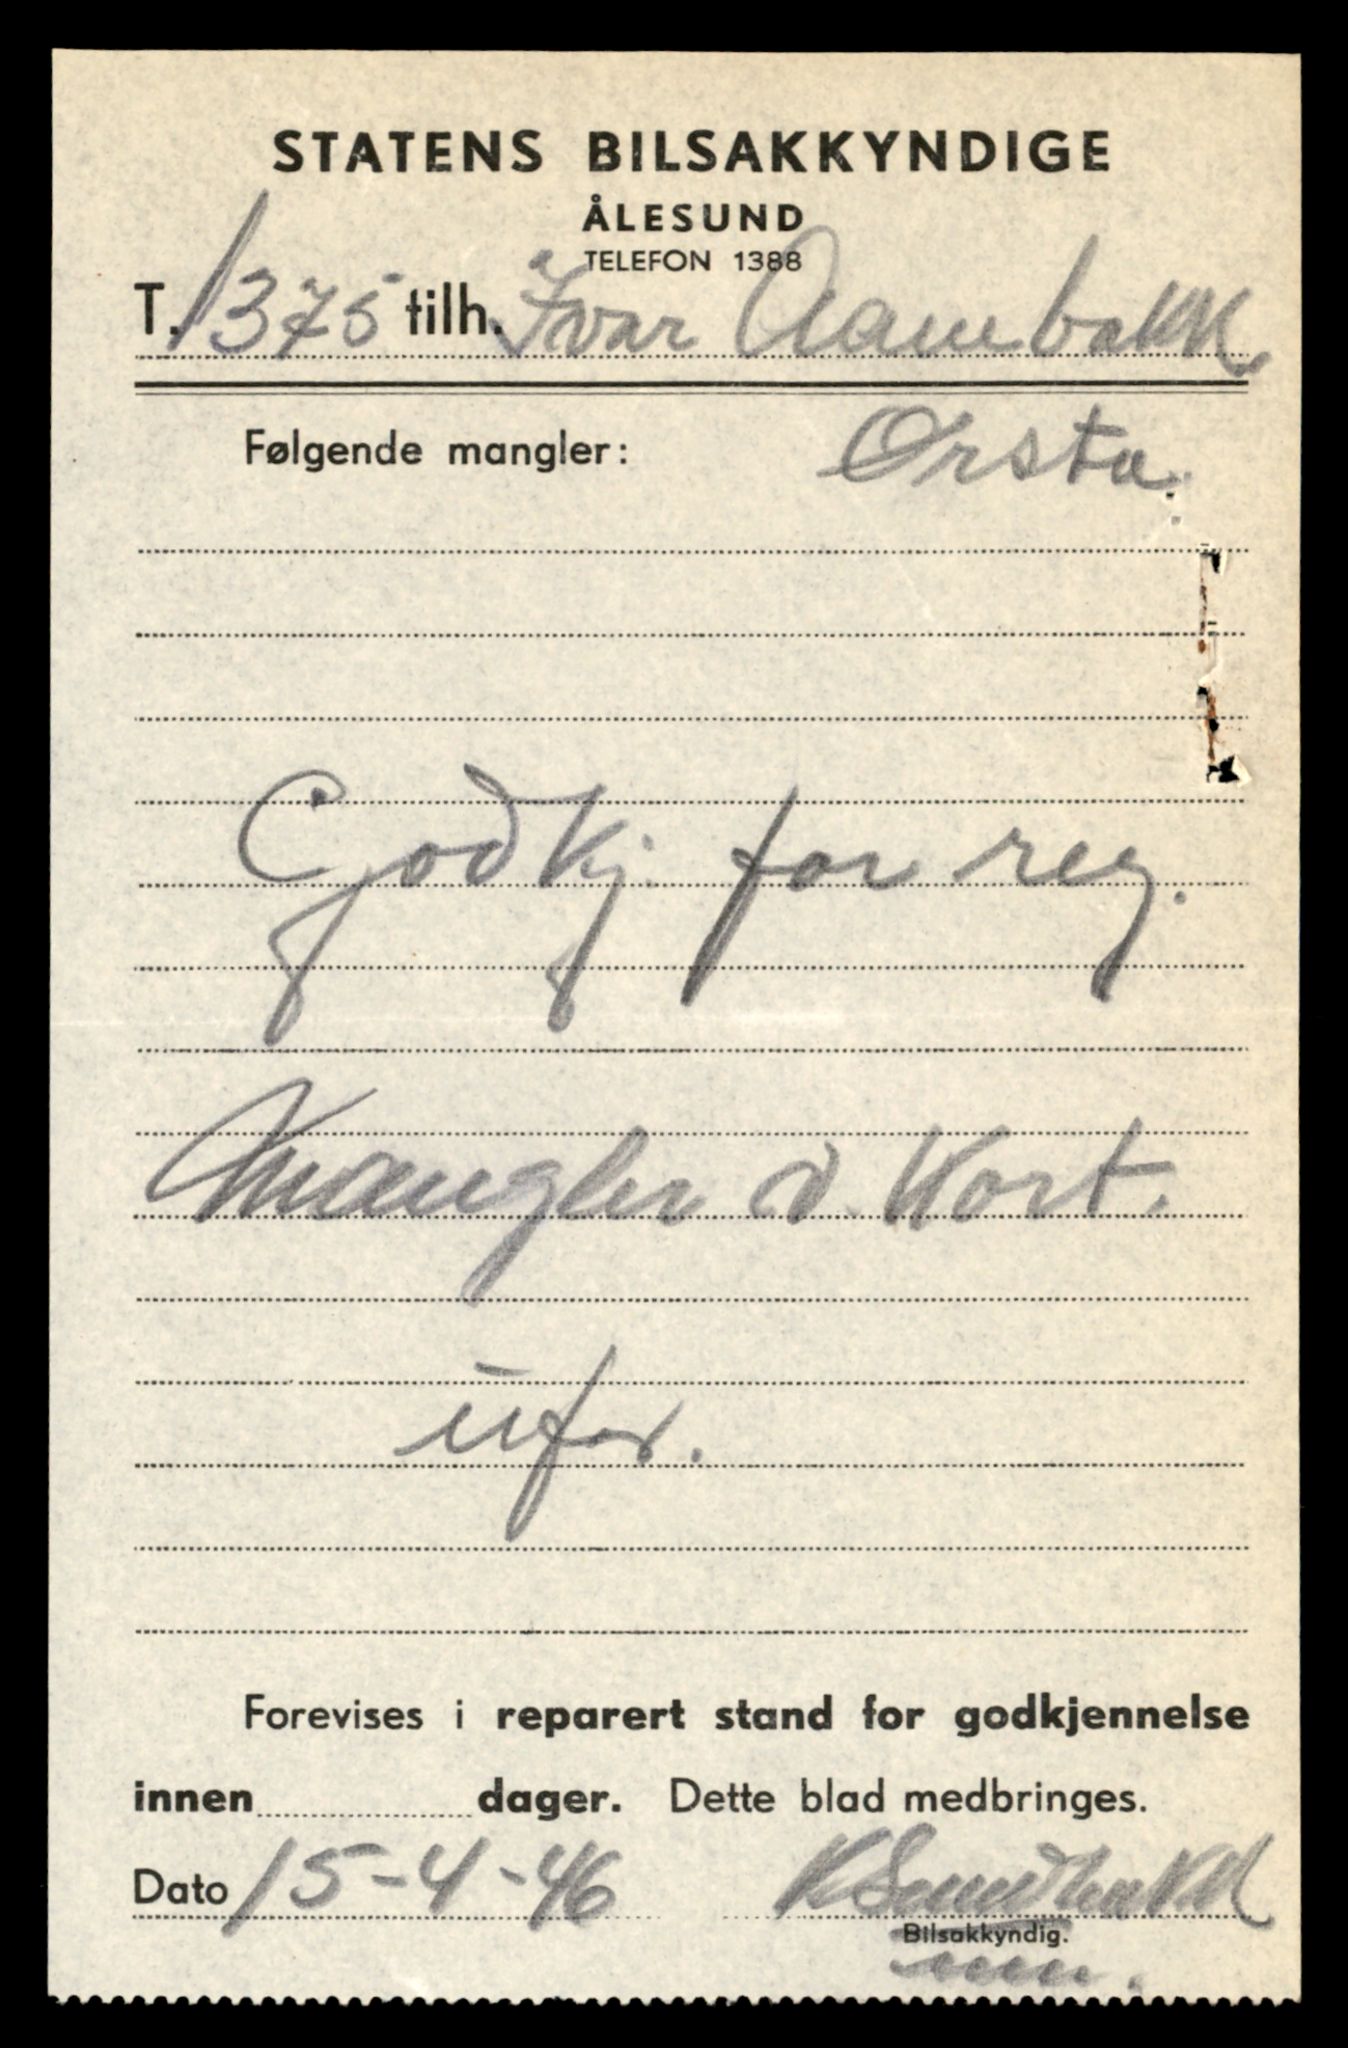 STATENS BILSAKKYNDIGE
ÅLESUND
TELEFON 1388
T. 1375 tilh. Ivar Aambakk
Følgende mangler: Ørsta.
Godkj. for reg.
Mangler v. Kort.
Forevises i reparert stand for godkjennelse
innen dager. Dette blad medbringes.
Dato 15-4-46 K Sundbakk
Bilsakkyndig.